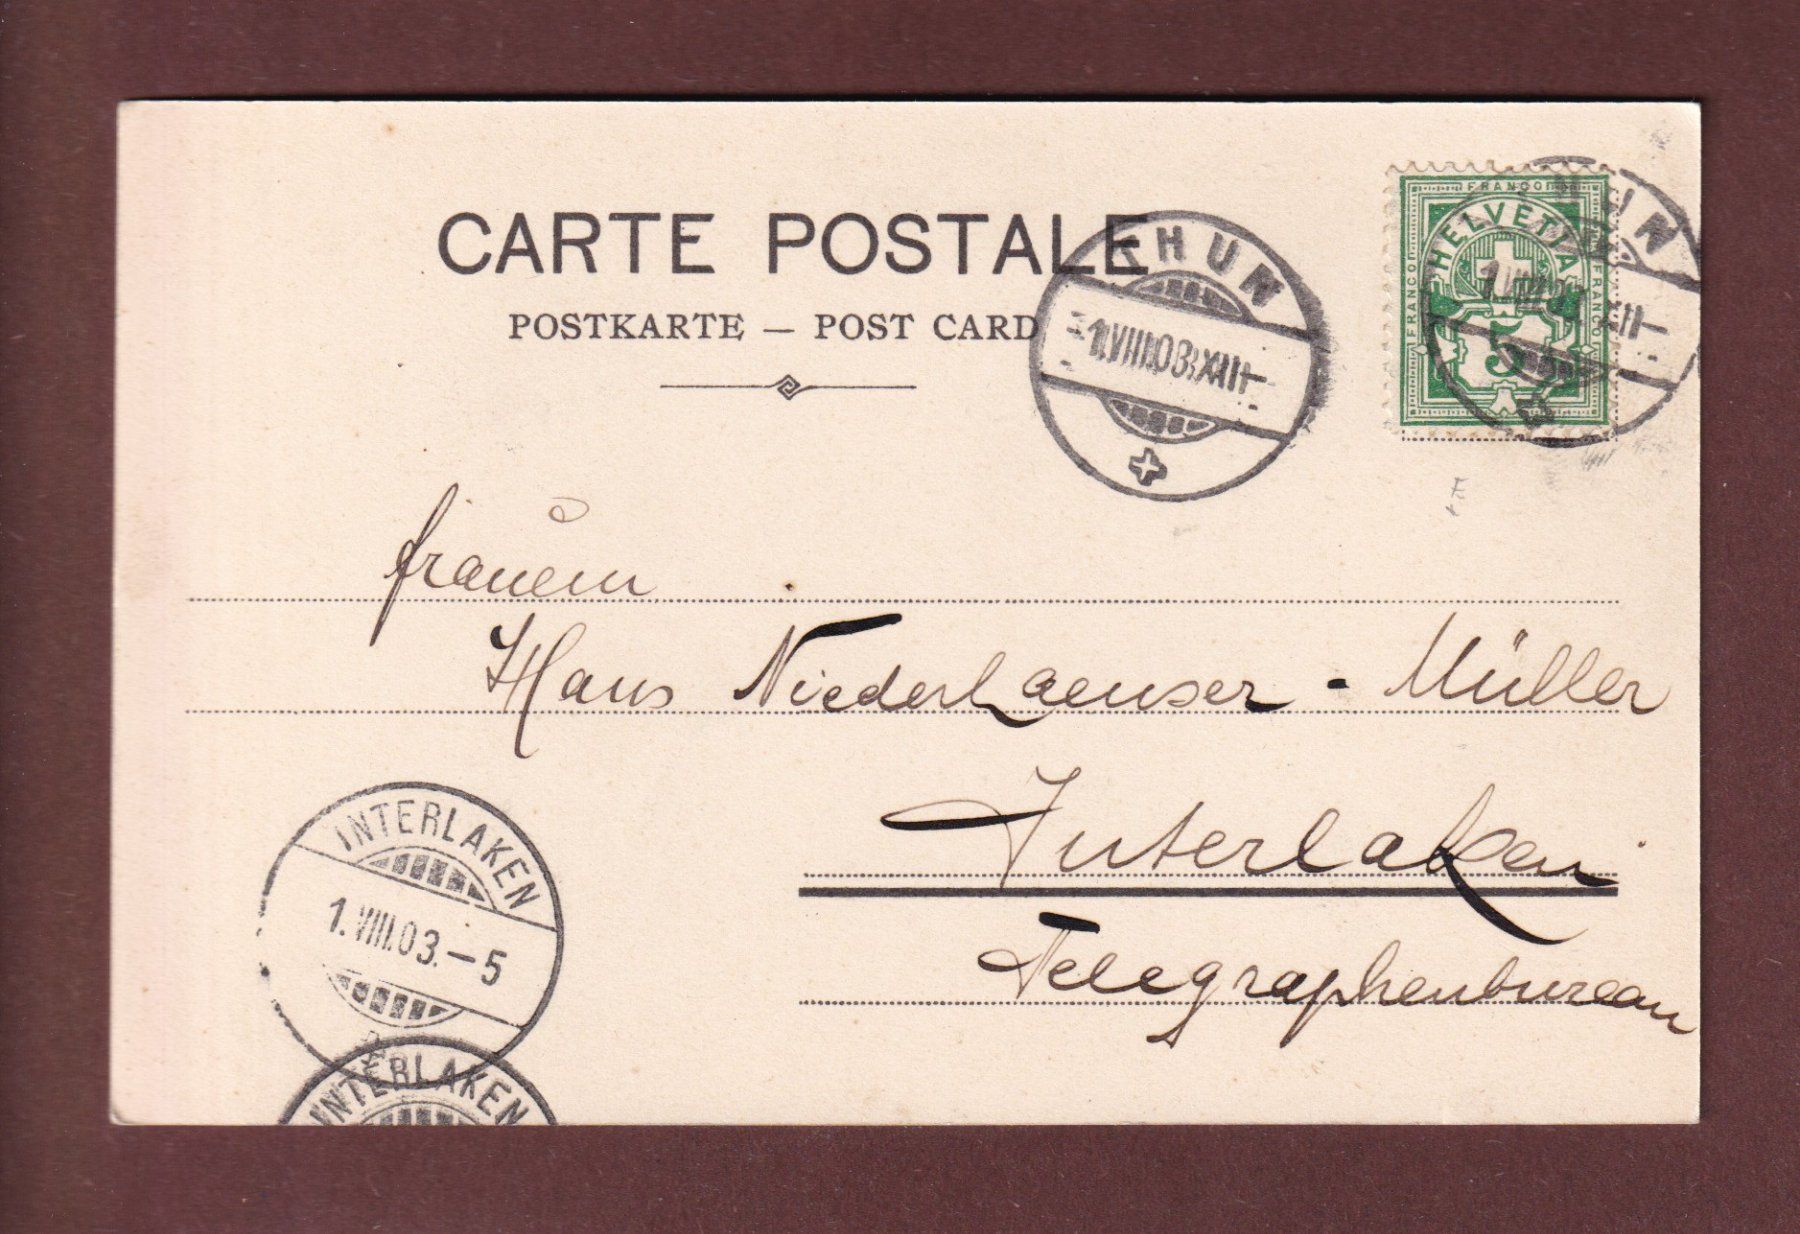 CARTE POSTALE
POSTKARTE — POST CARD
THUN
1.VIII.03.XII—
FRANCO
HELVETIA
FRANCO
FRANCO
5
THUN
1.VIII.03.XII—
Hans Niederhaeuser - Müller
Interlaken
Telegraphenbureau
INTERLAKEN
1.VIII.03.—5
INTERLAKEN